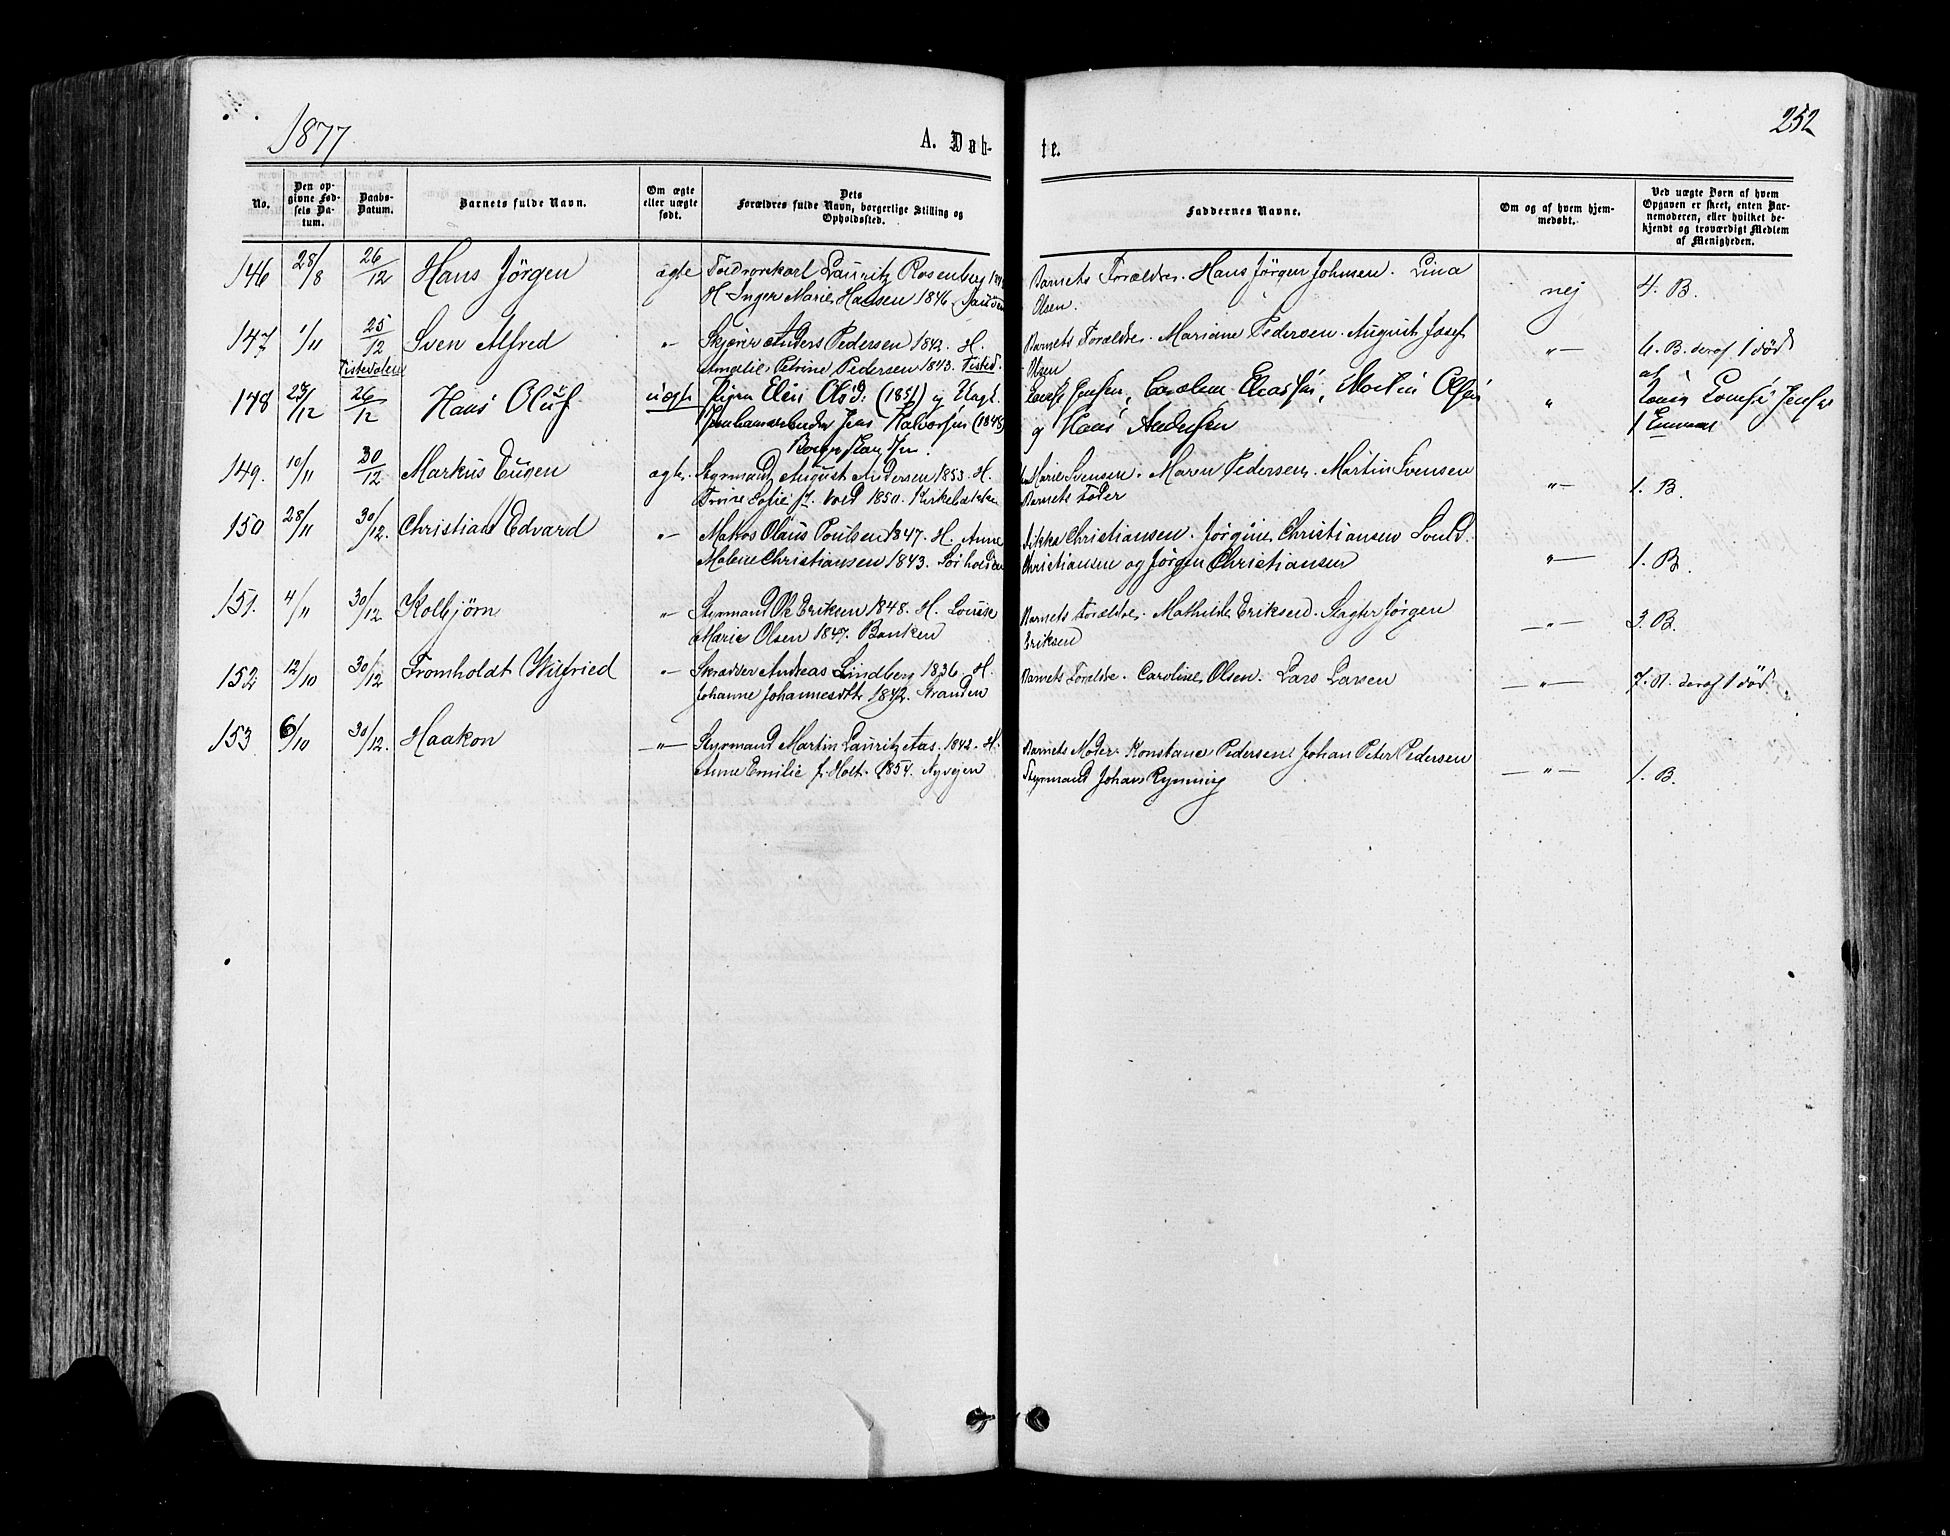 1877
252
A. Døb-
te.
No.
Den op-
givne Fød-
sels Da-
tum.
Daabs-
Datum.
Barnets fulde Navn.
Om ægte
eller uægte
født.
Dets
Forældres fulde Navn, borgerlige Stilling og
Opholdssted.
Faddernes Navne.
Om og af hvem hjem-
medøbt.
Ved uægte Børn af hvem
Opgaven er skeet, enten Bar-
nemoderen, eller hvilket be-
kjendt og troværdigt Medlem
af Menigheden.
146 28/8 26/12 Hans Jörgen ægte Lauritz Rosenberg
H. Inger Marie Hansen 1846.
Barnets Forældre. Hans Jörgen Johnsen. Lina
Olsen.
nej 4. B.
147 1/11 25/12 Sven Alfred "— Anders Pedersen 1842. H.
Amalie Petrine Pedersen 1843. Fisked.
Barnets Forældre. Mariane Pedersen. August Josef
Olsen
"— 6. B. deraf 1 död
148 23/12 26/12 Hans Oluf uægte Pigen Elen Olsd: (1851) og Ungk.
Jens Halvorsen (1848)
Jensen, Martin Olsen
og Hans Andersen
" af
Jensen
149. 10/11 30/12 Markus Eugen ægte. Styrmand August Andersen 1853. H.
Trine Sofie f. 1850. Kirkebakken
Marie Svensen. Maren Pedersen. Martin Svensen
Barnets Fader
"— 1. B.
150 28/11 30/12. Christian Edvard "— Matros Olaus Poulsen 1847. H. Anne
Malene Christiansen 1843.
Christiansen. Jörgine Christiansen
Christiansen og Jörgen Christiansen
"— 1. B.
151. 4/11 30/12 Kolbjörn "— Styrmand Ole Eriksen 1848. H. Lovise
Marie Olsen 1847. Banken
Barnets Forældre. Mathilde Eriksen. Slagter Jörgen
Eriksen
—"— 3. B.
152 12/10 30/12 Fromholdt Wilfried "— Skrædder Andreas Lindberg 1836. H.
Johanne Johannesdtr. 1842. Stranden
Barnets Forældre. Caroline Olsen. Lars Larsen
—"— 7. B. deraf 1 död.
153. 6/10 30/12. Haakon —"— Styrmand Martin Lauritz Aas. 1842. H.
Anne Emilie f. Holt. 1854. Nyvejen
Barnets Moder. Konstance Pedersen. Johan Peter Pedersen
Styrmand Johan Rynning
—"— 1. B.